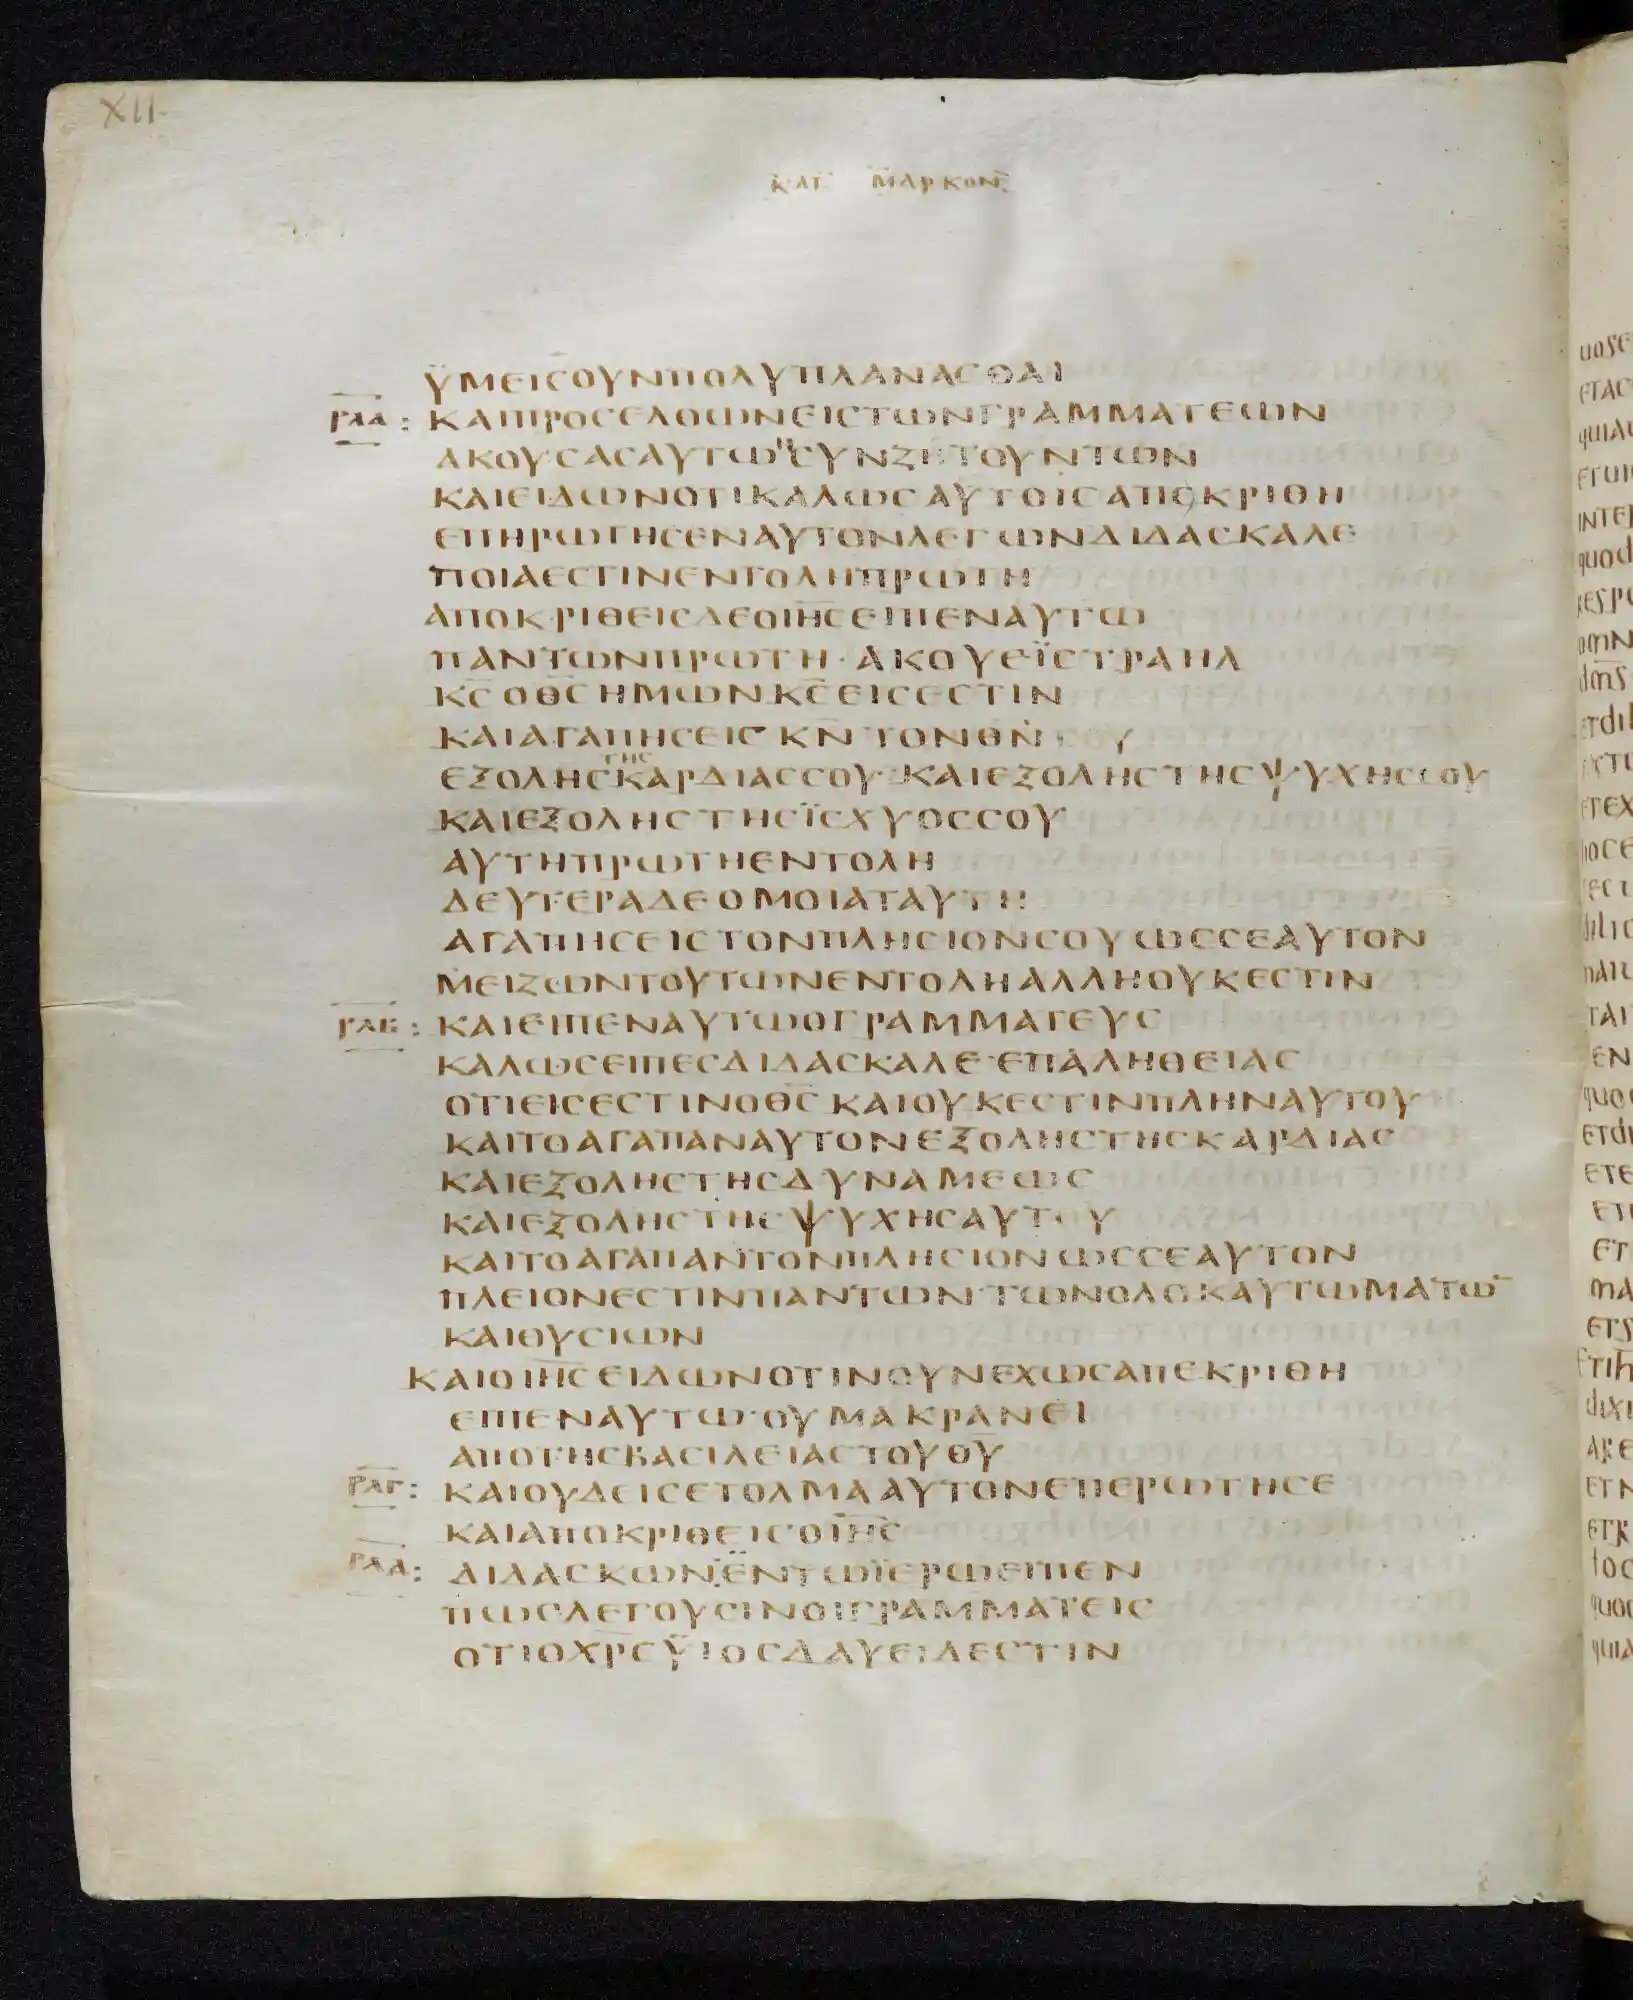 XII.
ΚΑΤ ΜΑΡΚΟΝ
ΫΜΕΙϹΟΥΝΠΟΛΥΠΛΑΝΑϹΘΑΙ
ΡΛΑ: ΚΑΙΠΡΟϹΕΛΘΩΝΕΙϹΤΩΝΓΡΑΜΜΑΤΕΩΝ
ΑΚΟΥϹΑϹΑΥΤΩΝϹΥΝΖΕΤΟΥΝΤΩΝ
ΚΑΙΕΙΔΩΝΟΤΙΚΑΛΩϹΑΥΤΟΙϹΑΠΟΚΡΙΘΗ
ΕΠΗΡΩΤΗϹΕΝΑΥΤΟΝΛΕΓΩΝΔΙΔΑϹΚΑΛΕ
ΠΟΙΑΕϹΤΙΝΕΝΤΟΛΗΠΡΩΤΗ
ΑΠΟΚΡΙΘΕΙϹΔΕΟΙΗ̅Ϲ̅ΕΙΠΕΝΑΥΤΩ
ΠΑΝΤΩΝΠΡΩΤΗ·ΑΚΟΥΕΪϹΤΡΑΗΛ
Κ̅Ϲ̅ΟΘ̅Ϲ̅ΗΜΩΝΚ̅Ϲ̅ΕΙϹΕϹΤΙΝ
ΚΑΙΑΓΑΠΗϹΕΙϹΚ̅Ν̅ΤΟΝΘ̅Ν̅ Υ
ΕΞΟΛΗϹΤΗϹΚΑΡΔΙΑϹϹΟΥ·ΚΑΙΕΞΟΛΗϹΤΗϹΨΥΧΗϹϹΟΥ
ΚΑΙΕΞΟΛΗϹΤΗϹΪϹΧΥΟϹϹΟΥ
ΑΥΤΗΠΡΩΤΗΕΝΤΟΛΗ
ΔΕΥΤΕΡΑΔΕΟΜΟΙΑΤΑΥΤΗ
ΑΓΑΠΗϹΕΙϹΤΟΝΠΛΗϹΙΟΝϹΟΥΩϹϹΕΑΥΤΟΝ
ΜΕΙΖΩΝΤΟΥΤΩΝΕΝΤΟΛΗΑΛΛΗΟΥΚΕϹΤΙΝ
ΡΛΒ: ΚΑΙΕΙΠΕΝΑΥΤΩΟΓΡΑΜΜΑΤΕΥϹ
ΚΑΛΩϹΕΙΠΕϹΔΙΔΑϹΚΑΛΕ·ΕΠΑΛΗΘΕΙΑϹ
ΟΤΙΕΙϹΕϹΤΙΝΟΘ̅Ϲ̅ΚΑΙΟΥΚΕϹΤΙΝΠΛΗΝΑΥΤΟΥ
ΚΑΙΤΟΑΓΑΠΑΝΑΥΤΟΝΕΞΟΛΗϹΤΗϹΚΑΡΔΙΑϹ
ΚΑΙΕΞΟΛΗϹΤΗϹΔΥΝΑΜΕΩϹ
ΚΑΙΕΞΟΛΗϹΤΗϹΨΥΧΗϹΑΥΤΟΥ
ΚΑΙΤΟΑΓΑΠΑΝΤΟΝΠΛΗϹΙΟΝΩϹϹΕΑΥΤΟΝ
ΠΛΕΙΟΝΕϹΤΙΝΠΑΝΤΩΝ·ΤΩΝΟΛΟΚΑΥΤΩΜΑΤΩ̅
ΚΑΙΘΥϹΙΩΝ
ΚΑΙΟΙΗ̅Ϲ̅ΕΙΔΩΝΟΤΙΝΟΥΝΕΧΩϹΑΠΕΚΡΙΘΗ
ΕΙΠΕΝΑΥΤΩ·ΟΥΜΑΚΡΑΝΕΙ
ΑΠΟΤΗϹΒΑϹΙΛΕΙΑϹΤΟΥΘ̅Υ̅
ΡΛΓ: ΚΑΙΟΥΔΕΙϹΕΤΟΛΜΑΑΥΤΟΝΕΠΕΡΩΤΗϹΕ
ΚΑΙΑΠΟΚΡΙΘΕΙϹΟΙΗ̅Ϲ̅
ΡΛΔ: ΔΙΔΑϹΚΩΝΕΝΤΩΪΕΡΩΕΙΠΕΝ
ΠΩϹΛΕΓΟΥϹΙΝΟΙΓΡΑΜΜΑΤΕΙϹ
ΟΤΙΟΧ̅Ρ̅Ϲ̅ΫΙΟϹΔΑΥΕΙΔΕϹΤΙΝ